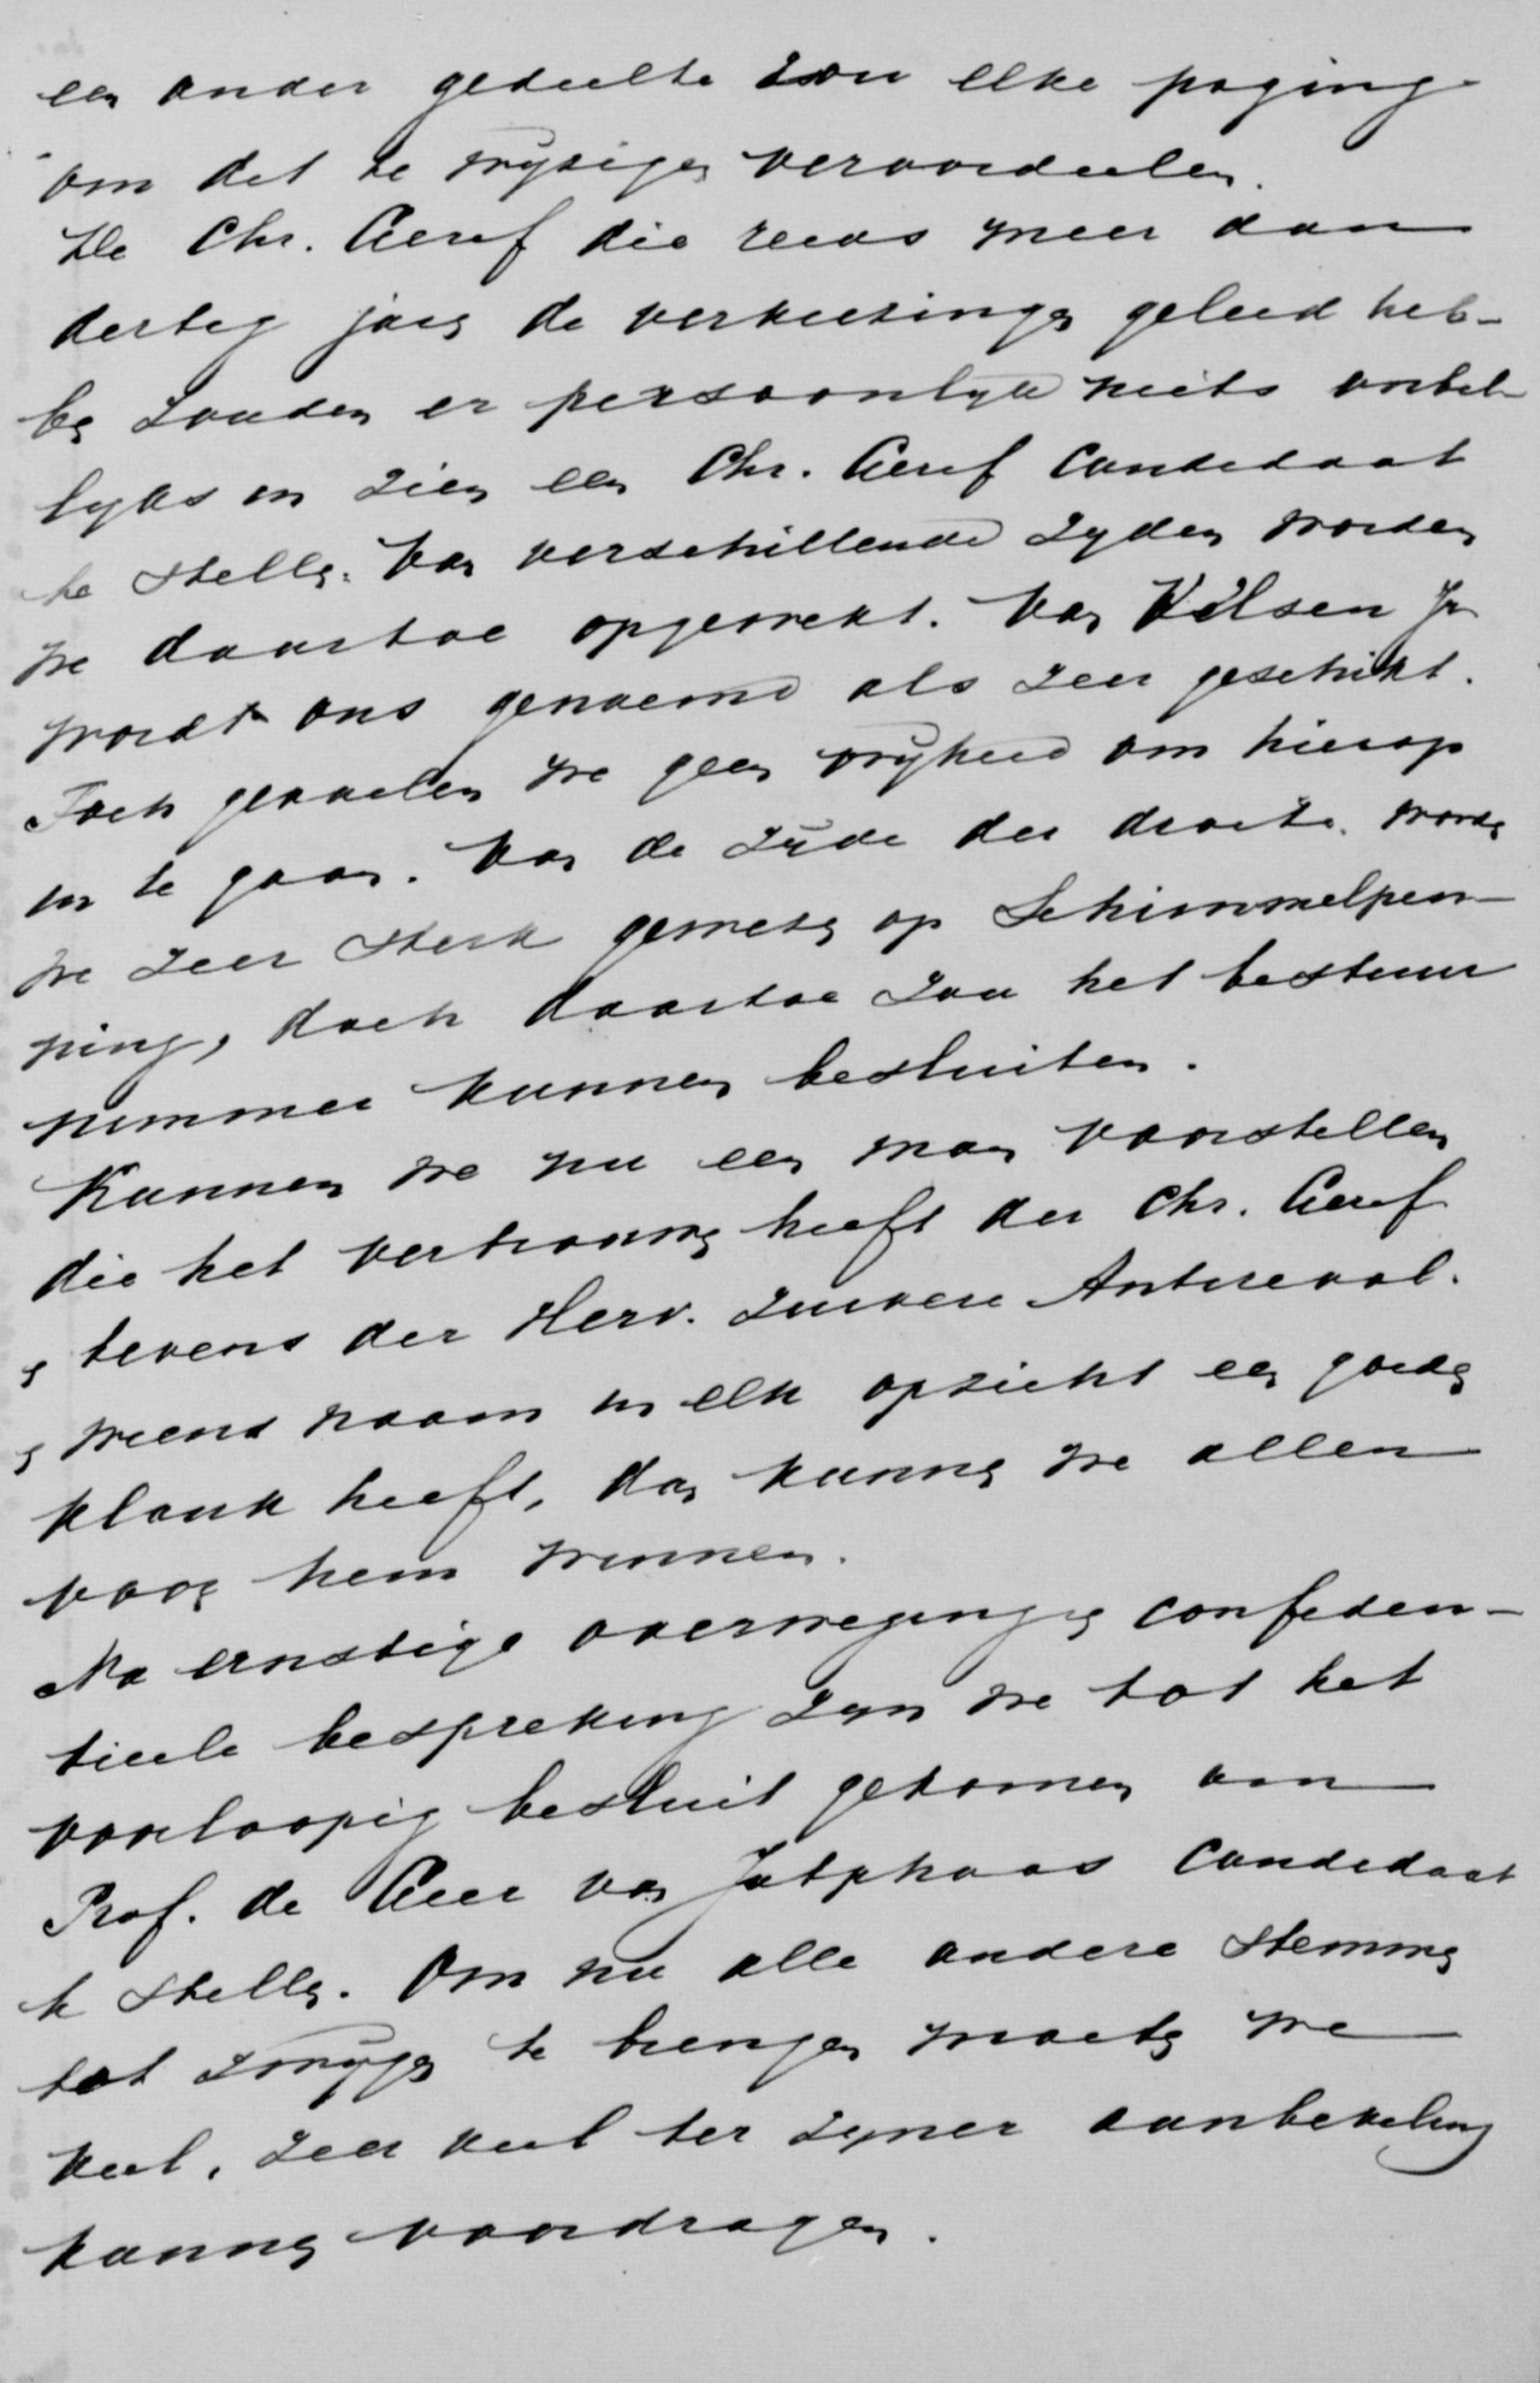 een ander gedeelte zou elke poging
om dit te wijzigen veroordeelen.
De Chr. Geref die reeds meer dan
dertig jaar de verkiezingen geleid heb-
ben zouden er persoonlyk niets onbil-
lyks in zien een Chr. Geref Candidaat
te stellen. Van verschillende zyden worden
we daartoe opgewekt. Van Velsen Jr
wordt ons genoemd als zeer geschikt.
Toch gevoelen we geen vrijheid om hierop
in te gaan. Van de zijde der worden
we zeer sterk gewezen op Schimmelpen-
ning, doch daartoe zou het bestuur
nimmer kunnen besluiten.
Kunnen we nu een man voorstellen
die het vertrouwen heeft der Chr. Geref
en tevens der Herv. zuivere Antirevol.
en wiens naam in elk opzicht een goeden
klank heeft, dan kunnen we allen
voor hem winnen.
Na ernstige overweging en confiden-
tieele bespreking zyn we tot het
voorloopig besluit gekomen om
Prof. de Geer van Jutphaas Candidaat
te stellen. Om nu alle andere stemmen
tot zwijgen te brengen moeten we
veel, zeer veel ter zyner aanbeveling
kunnen voordragen.